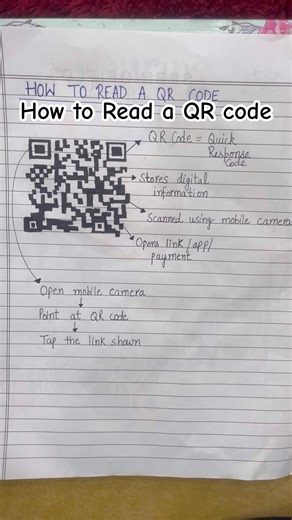 HOW TO READ A QR CODE
How to Read a QR code
QR Code = Quick
Response
Code
Stores digital
information
Scanned using mobile camera
Opens link/app/
payment
Open mobile camera
Point at QR code
Tap the link shown